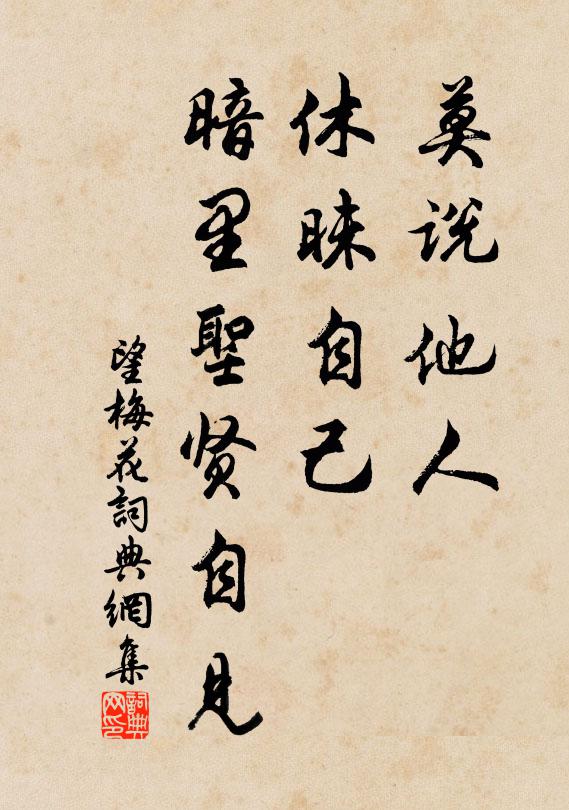 莫说他人
休昧自己
暗里聖贤自見
望梅花詞典網集
詞典网印